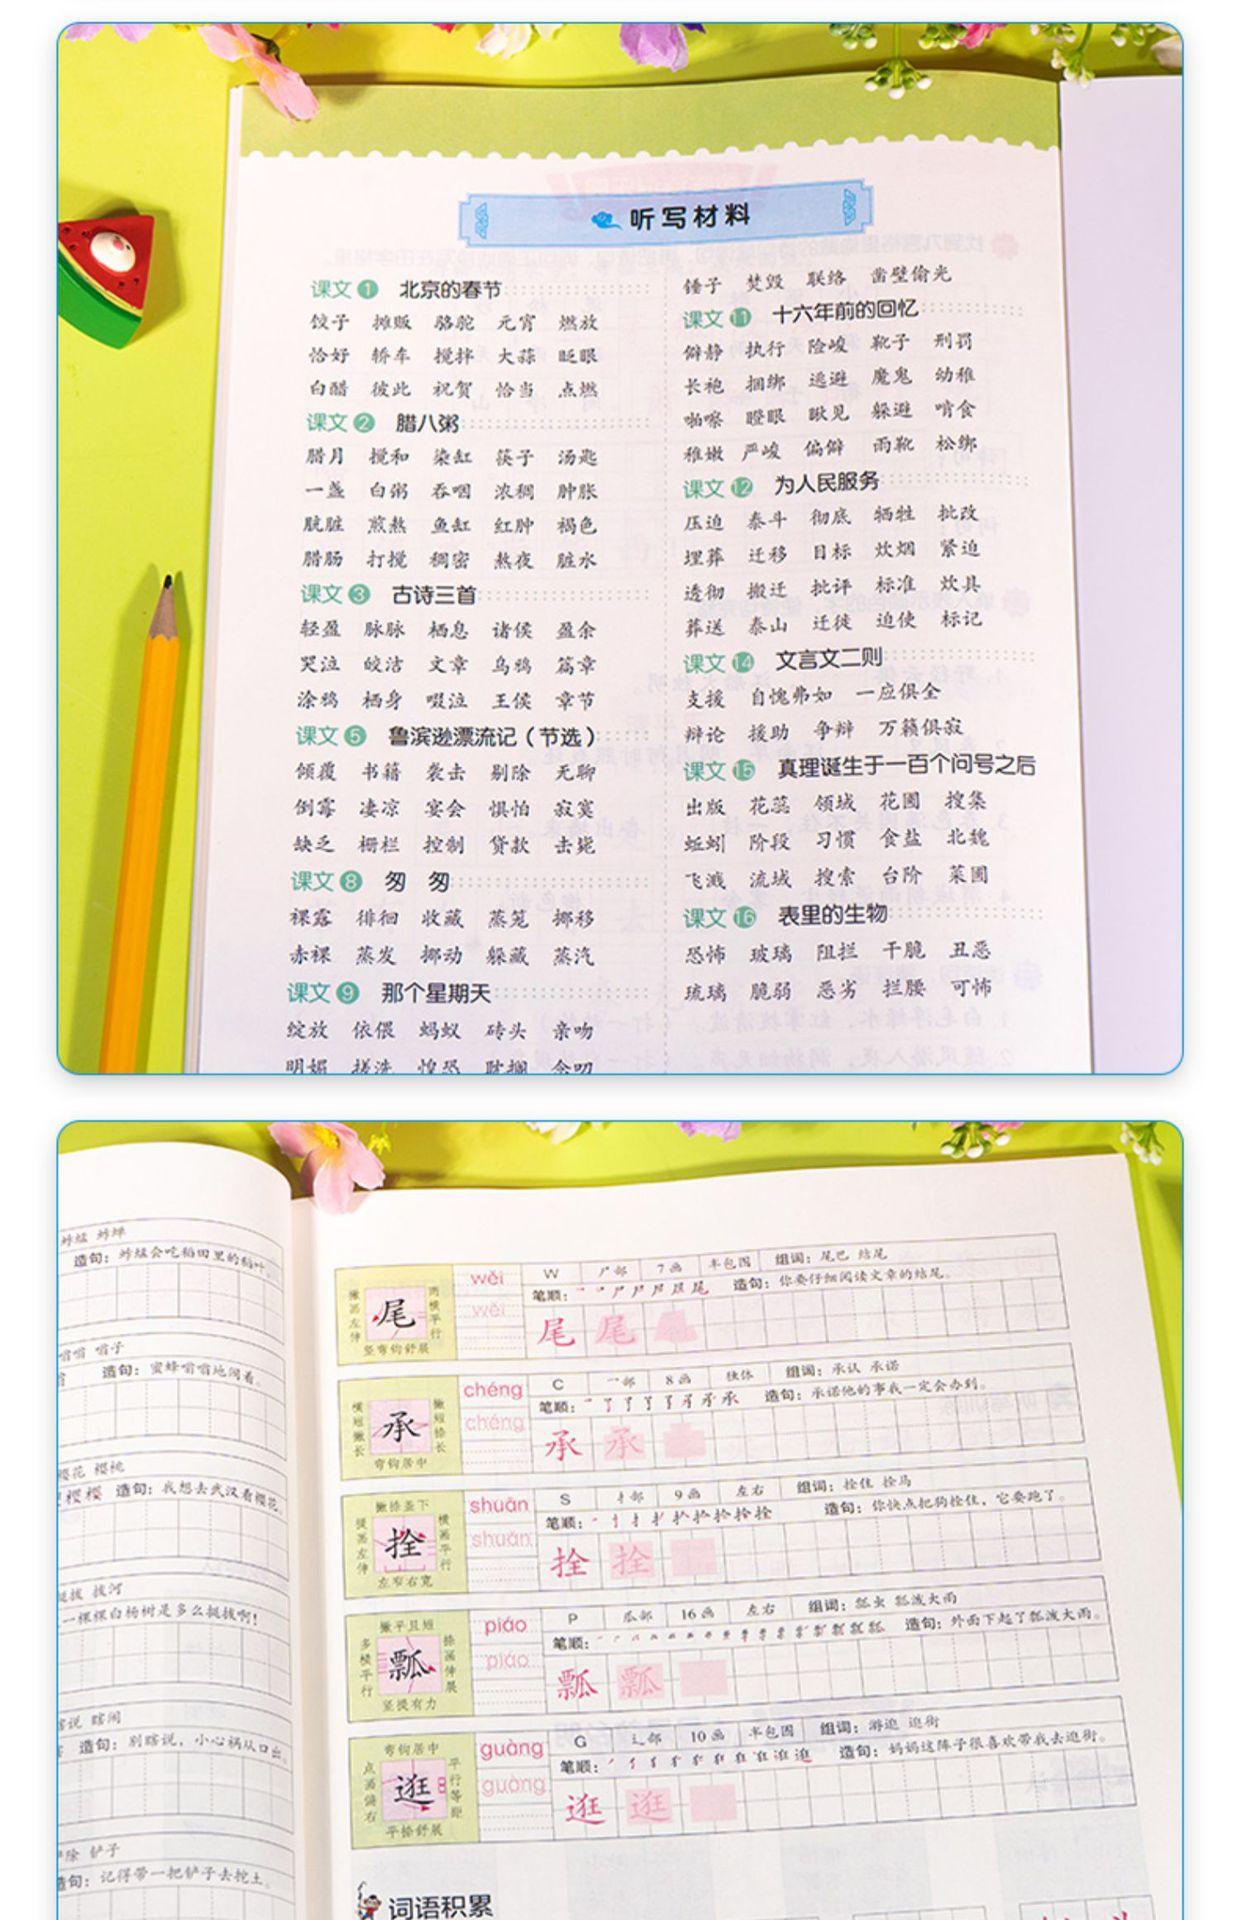 听写材料
课文1 北京的春节
饺子 摊贩 骆驼 元宵 燃放
恰好 轿车 搅拌 大蒜 眨眼
白醋 彼此 祝贺 恰当 点燃
课文2 腊八粥
腊月 搅和 染缸 筷子 汤匙
一盏 白粥 吞咽 浓稠 肿胀
肮脏 煎熬 鱼缸 红肿 褐色
腊肠 打搅 稠密 熬夜 脏水
课文3 古诗三首
轻盈 脉脉 栖息 诸侯 盈余
哭泣 皎洁 文章 乌鸦 篇章
涂鸦 栖身 啜泣 王侯 章节
课文5 鲁滨逊漂流记（节选）
倾覆 书籍 袭击 剔除 无聊
倒霉 凄凉 宴会 惧怕 寂寞
缺乏 栅栏 控制 贷款 击毙
课文8 匆匆
裸露 徘徊 收藏 蒸笼 挪移
赤裸 蒸发 挪动 躲藏 蒸汽
课文9 那个星期天
绽放 依偎 蚂蚁 砖头 亲吻
明媚 搓洗 惶恐 耽搁 念叨
锤子 焚毁 联络 凿壁偷光
课文11 十六年前的回忆
僻静 执行 险峻 靴子 刑罚
长袍 捆绑 逃避 魔鬼 幼稚
啪嚓 瞪眼 瞅见 躲避 啃食
稚嫩 严峻 偏僻 雨靴 松绑
课文12 为人民服务
压迫 泰斗 彻底 牺牲 批改
埋葬 迁移 目标 炊烟 紧迫
透彻 搬迁 批评 标准 炊具
葬送 泰山 迁徙 迫使 标记
课文14 文言文二则
支援 自愧弗如 一应俱全
辩论 援助 争辩 万籁俱寂
课文15 真理诞生于一百个问号之后
出版 花蕊 领域 花圃 搜集
蚯蚓 阶段 习惯 食盐 北魏
飞溅 流域 搜索 台阶 菜圃
课文16 表里的生物
恐怖 玻璃 阻拦 干脆 丑恶
琉璃 脆弱 恶劣 拦腰 可怖
蚱蜢 蚱蝉
造句：蚱蜢会吃稻田里的稻叶。
嗡嗡 嗡子
造句：蜜蜂嗡嗡地闹着。
樱花 樱桃
樱樱 造句：我想去武汉看樱花。
挺拔 拔河
一棵棵白杨树是多么挺拔啊！
瞎说 瞎闹
造句：别瞎说，小心祸从口出。
铲除 铲子
造句：记得带一把铲子去挖土。
撇画左伸 尾 两横平行 竖弯钩舒展
wěi wěi
W 尸部 7画 半包围 组词：尾巴 结尾
笔顺： 造句：你要仔细阅读文章的结尾。
尾 尾
横短撇长 承 撇短捺长 弯钩居中
chéng chéng
C 乛部 8画 独体 组词：承认 承诺
笔顺： 造句：承诺他的事我一定会办到。
承 承
撇捺盖下 提画左伸 拴 横画平行 左窄右宽
shuān shuān
S 扌部 9画 左右 组词：拴住 拴马
笔顺： 造句：你快点把狗拴住，它要跑了。
拴 拴
撇平且短 多横平行 瓢 捺画伸展 竖提有力
piáo piáo
P 瓜部 16画 左右 组词：瓢虫 瓢泼大雨
笔顺： 造句：外面下起了瓢泼大雨。
瓢 瓢
弯钩居中 点画偏右 逛 平行等距 平捺舒展
guàng guàng
G 辶部 10画 半包围 组词：游逛 逛街
笔顺： 造句：妈妈这阵子很喜欢带我去逛街。
逛 逛
词语积累